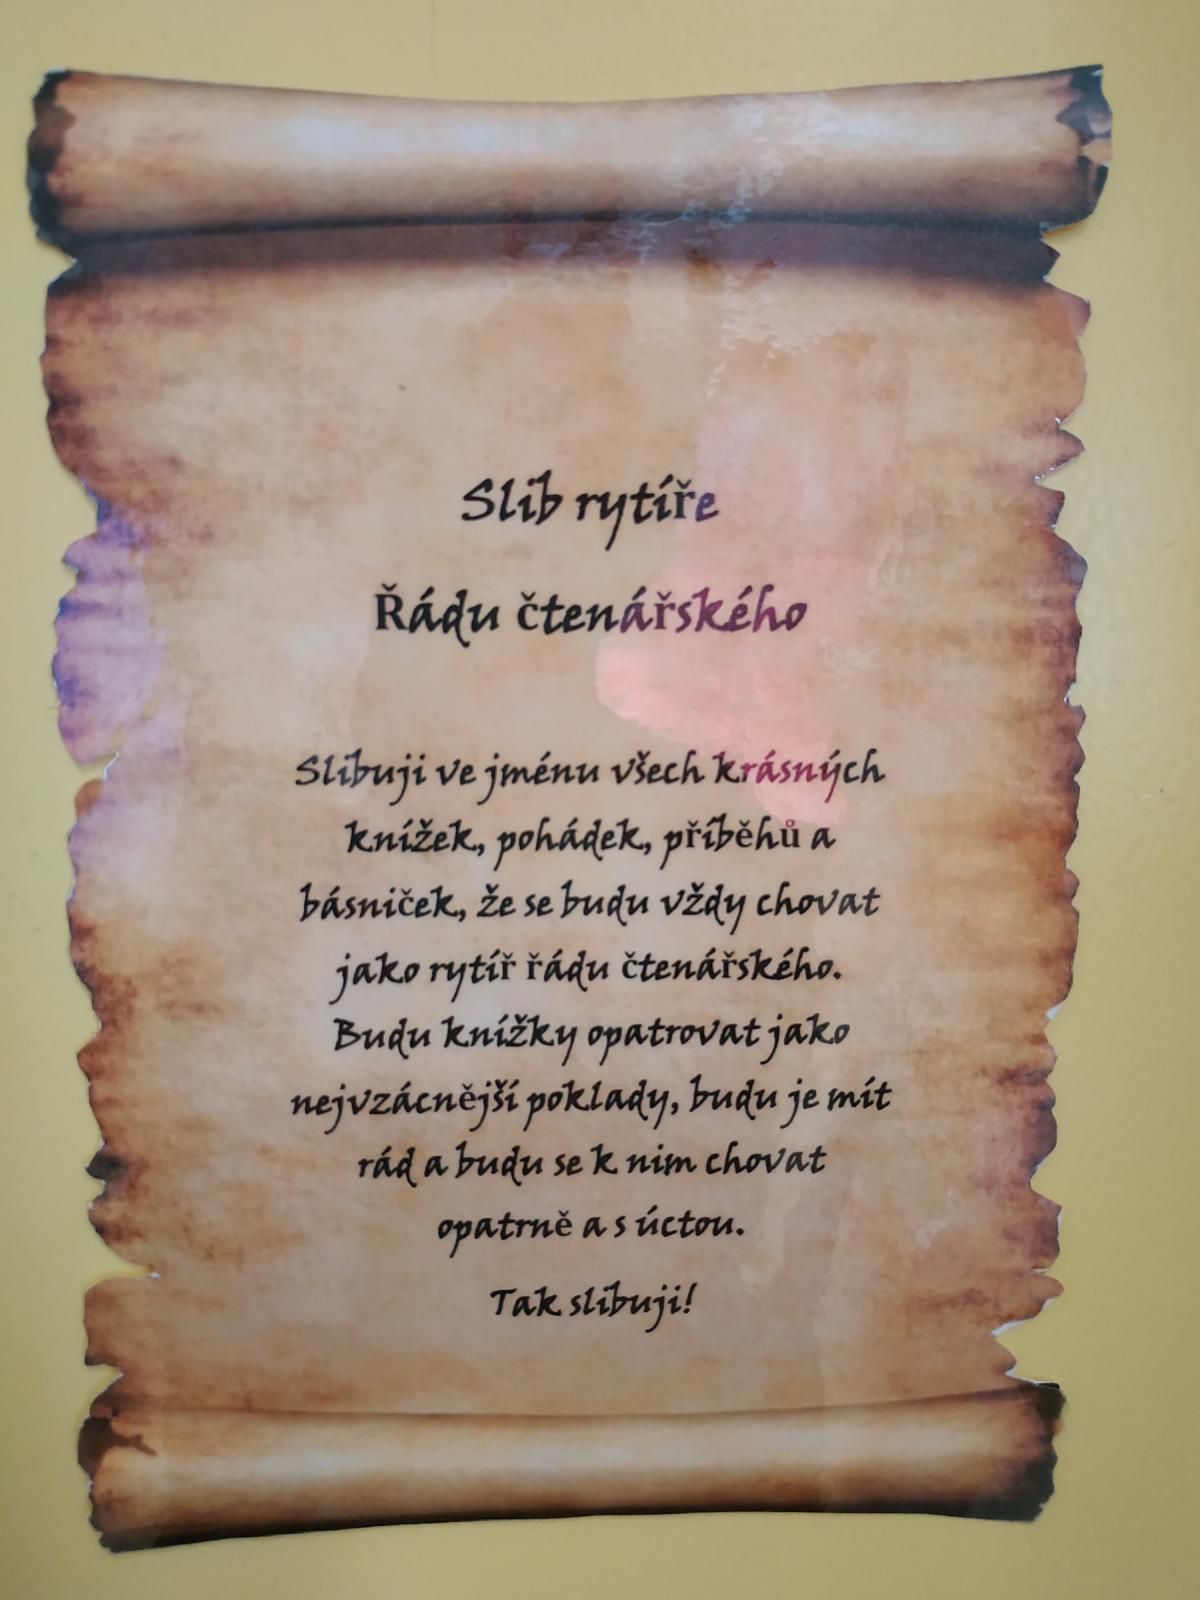 Slib rytíře
Řádu čtenářského
Slibuji ve jménu všech krásných
knížek, pohádek, příběhů a
básniček, že se budu vždy chovat
jako rytíř řádu čtenářského.
Budu knížky opatrovat jako
nejvzácnější poklady, budu je mít
rád a budu se k nim chovat
opatrně a s úctou.
Tak slibuji!